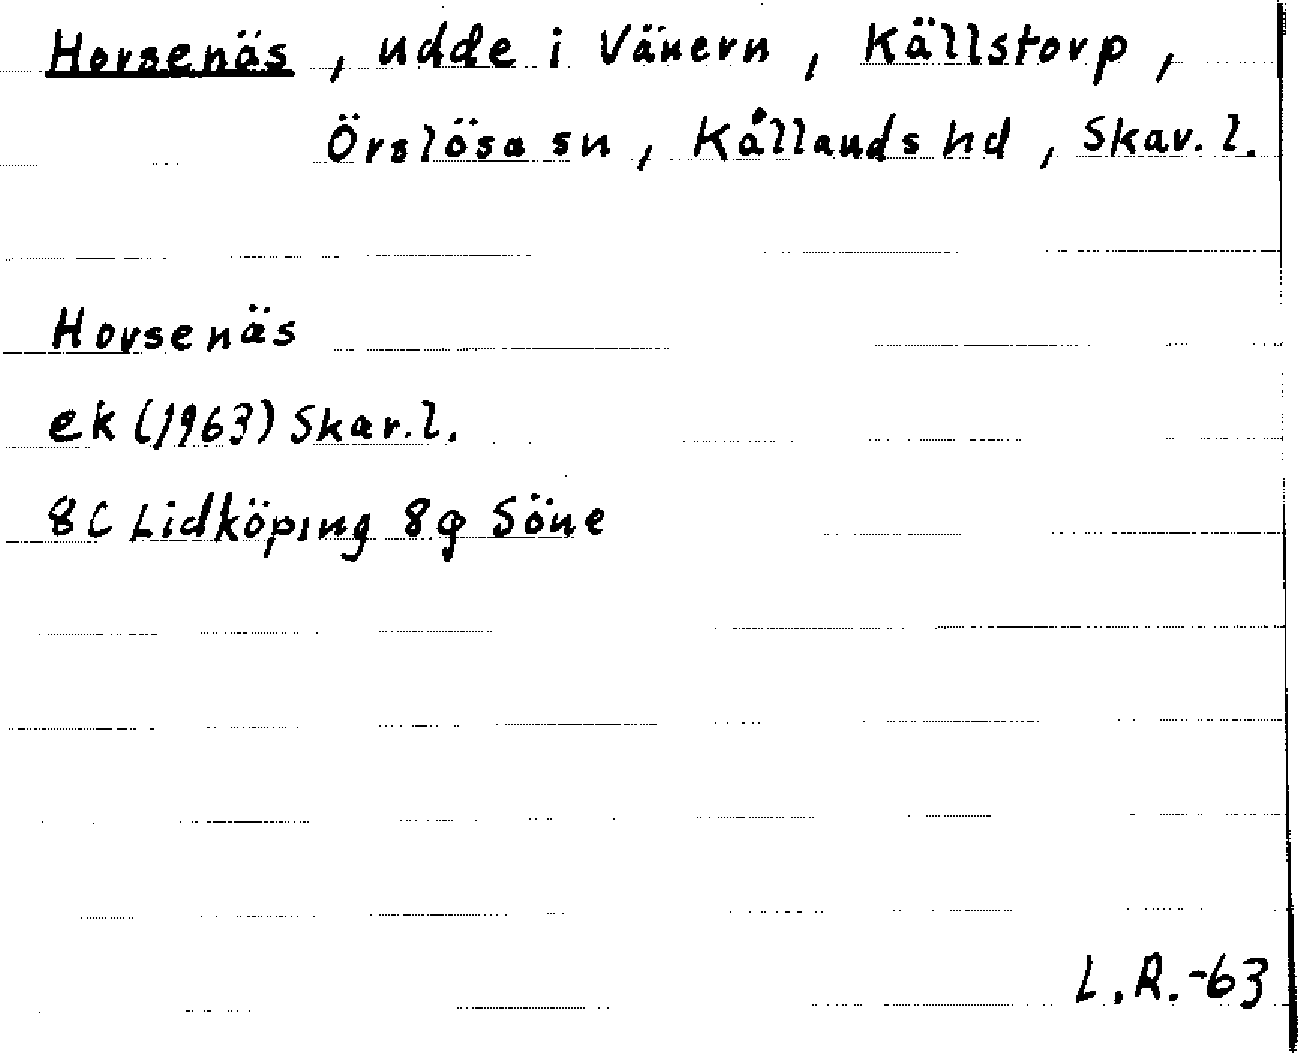 Horsenäs, udde i Vänern, Källstorp,
Örslösa sn, Kållands hd, Skar. l.
Horsenäs
ek (1963) Skar. l.
8C Lidköping 8g Söne
L.R.-63